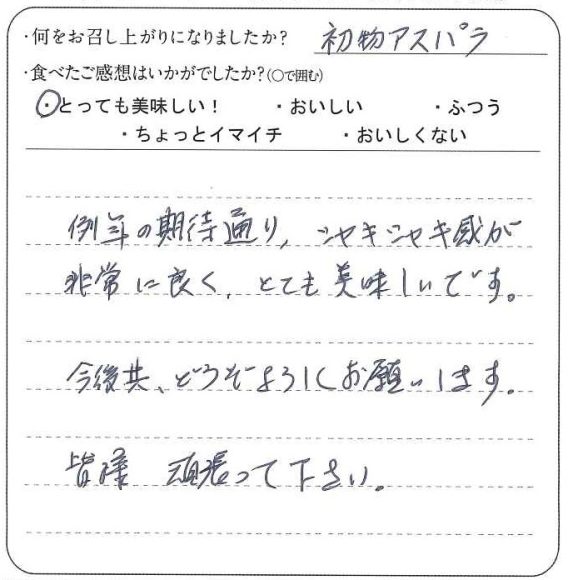 ・何をお召し上がりになりましたか? 初物アスパラ
・食べたご感想はいかがでしたか?(○で囲む)
・とっても美味しい! ・おいしい ・ふつう
・ちょっとイマイチ ・おいしくない
例年の期待通り、シャキシャキ感が
非常に良く、とても美味しいです。
今後共、どうぞよろしくお願いします。
皆様 頑張って下さい。